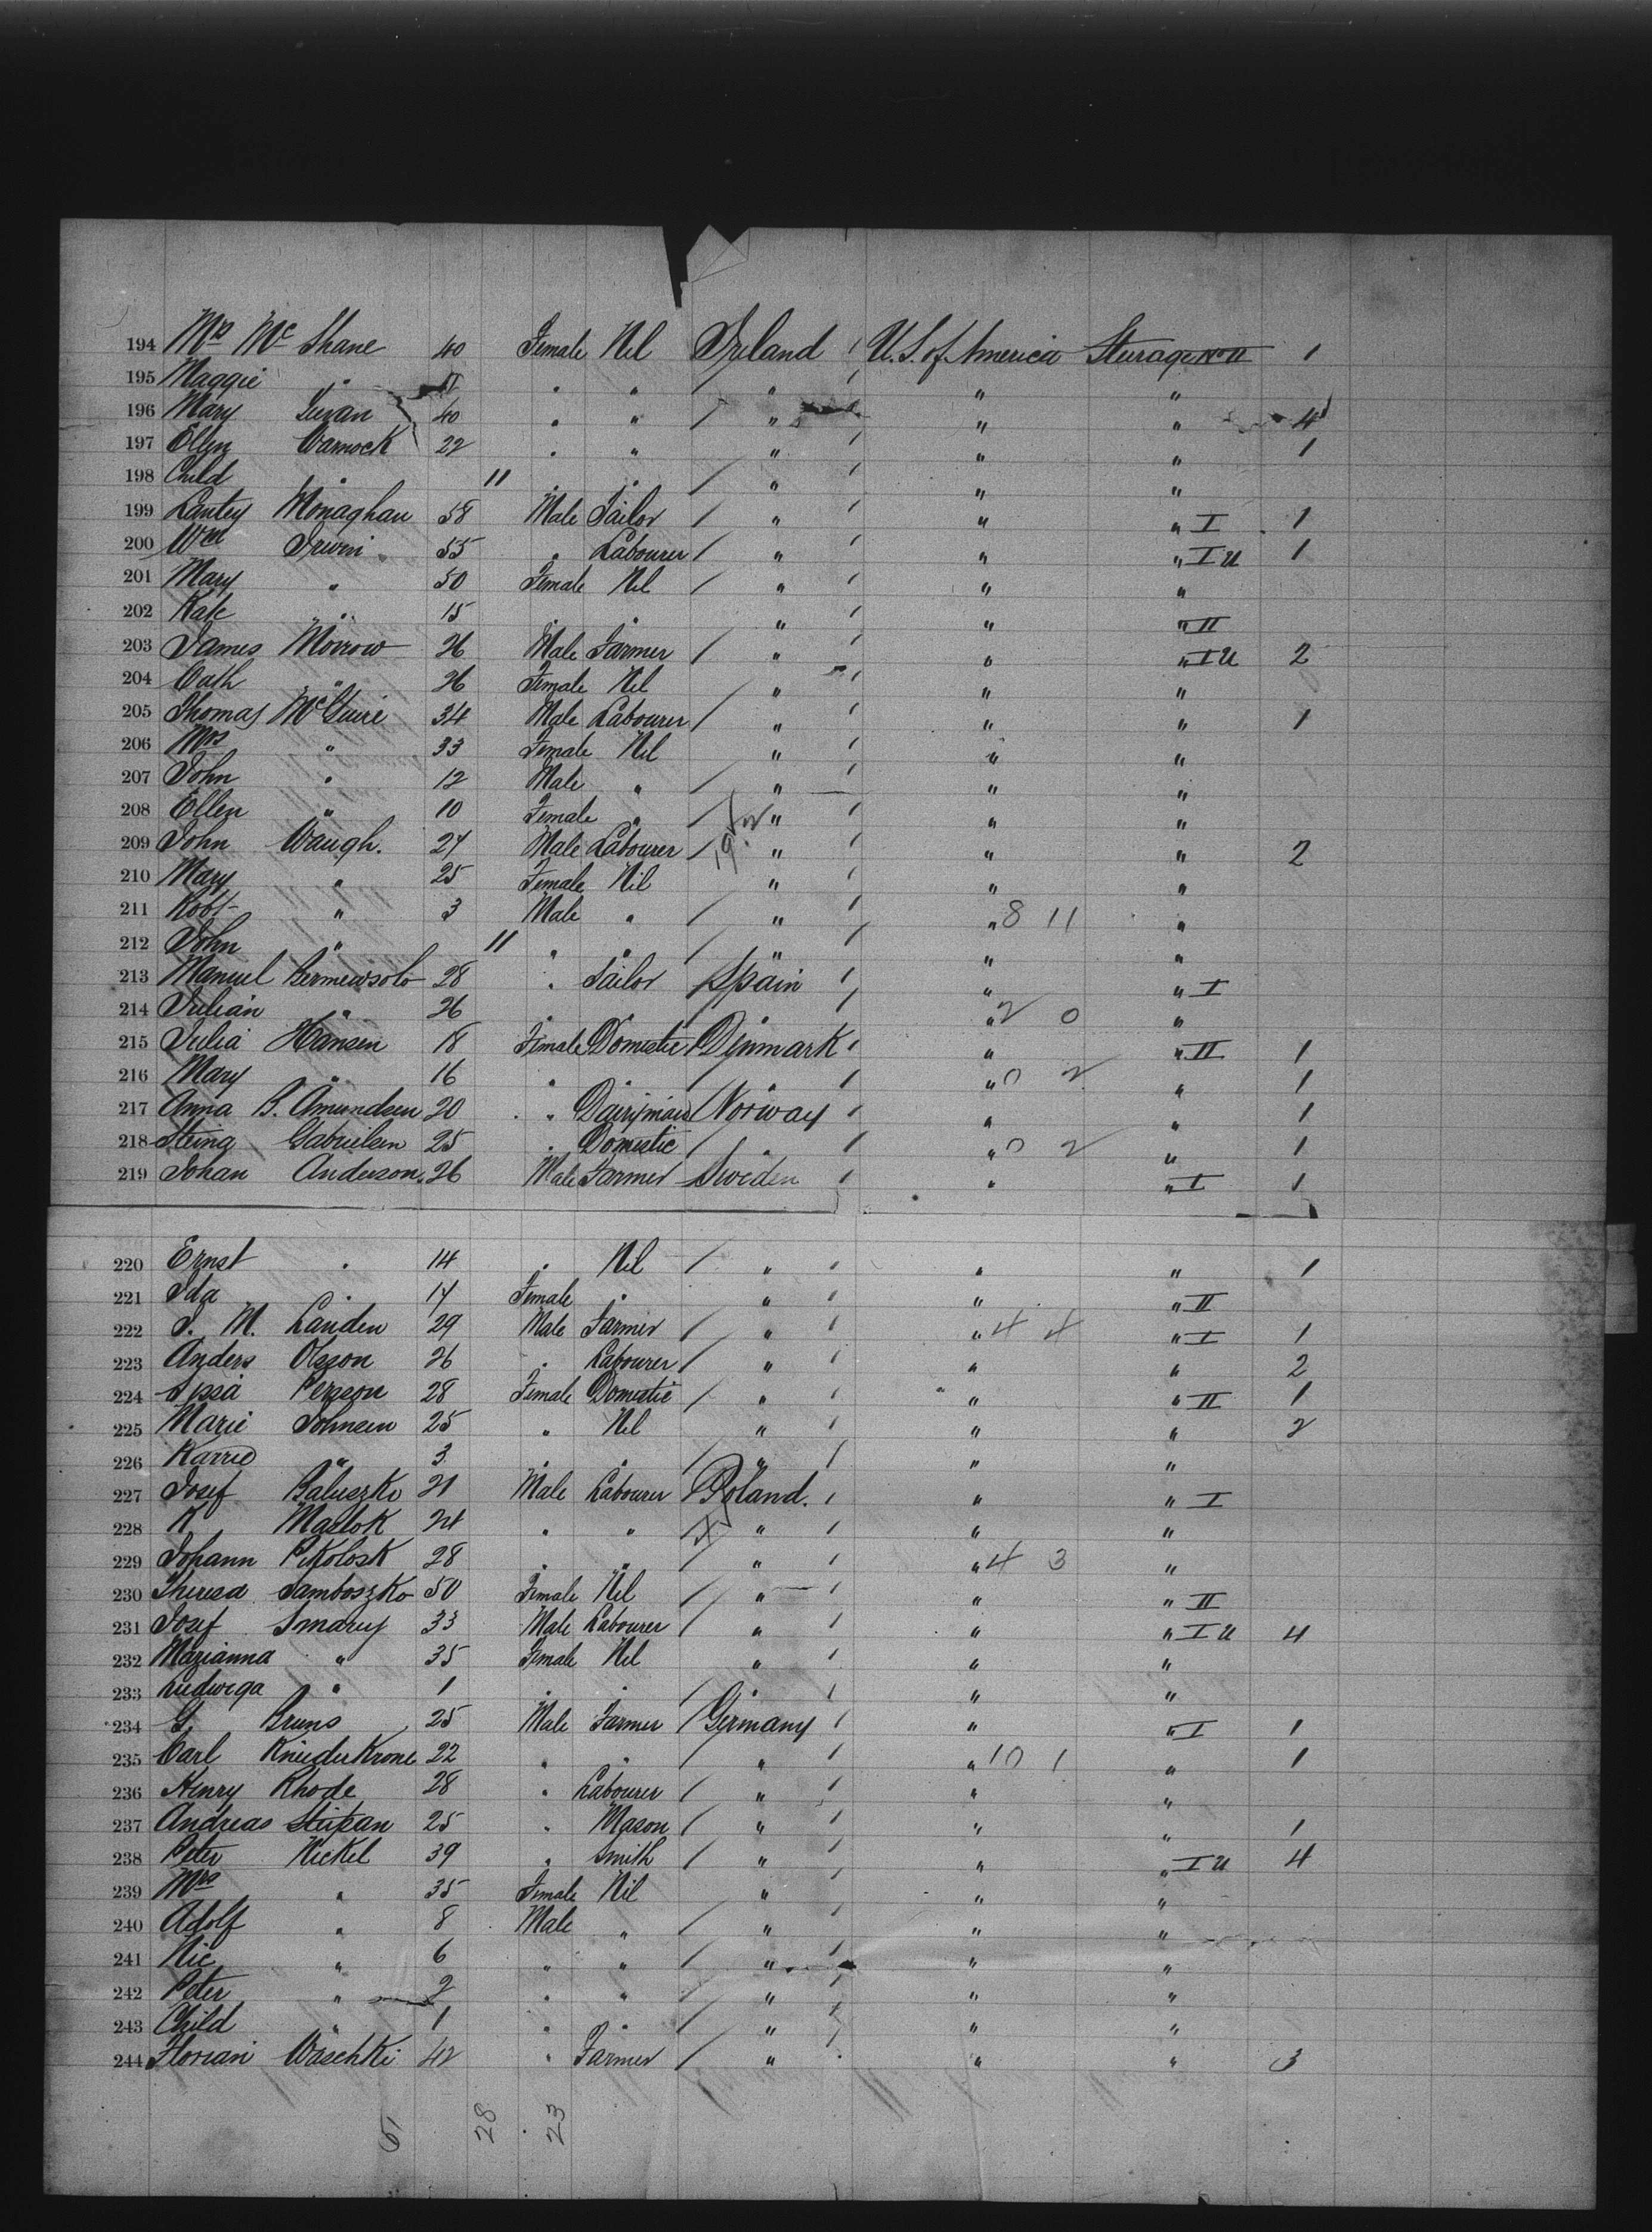 194 Mrs Mc Shane 40 Female Nil Ireland / U.S. of America Steerage No II 1
195 Maggie " " " / " / " "
196 Mary 40 " " / " " " 4
197 Ellen Warnock 22 " " " / " " 1
198 Child " 11 " " / " / " "
199 Lantey Monaghan 58 Male Tailor / " / " " I 1
200 Wm Irwin 55 " Labourer / " / " " I U 1
201 Mary " 50 Female Nil / " / " "
202 Kate " 15 " " " / " " II
203 James Morrow 26 Male Farmer / " / " " I U 2
204 Cath " 26 Female Nil " / " "
205 Thomas McGuire 34 Male Labourer / " / " " 1
206 Mrs " 33 Female Nil " / " "
207 John " 12 Male " / " / " "
208 Ellen " 10 Female " / " / " "
209 John Waugh. 27 Male Labourer / 19 " / " " 2
210 Mary " 25 Female Nil " / " "
211 Robt " 3 Male " / " / " 8 11 "
212 John " 11 " " / " / " "
213 Manuel Bermewsolo 28 " Sailor / Spain / " " I
214 Julian " 26 " " " / " 2 0 "
215 Julia Hansen 18 Female Domestic / Denmark / " " II 1
216 Mary " 16 " " / " / " 0 2 " 1
217 Anna B. Amundsen 20 " Norway / " " 1
218 Gabrielsen 25 " Domestic / " / " 0 2 " 1
219 Johan Anderson 26 Male Farmer Sweden / " " I 1
220 Ernst " 14 " Nil / " / " " 1
221 Ida " 17 Female " " / " " II
222 J. M. Landen 29 Male Farmer / " / " 4 4 " I 1
223 Anders Olsson 26 " Labourer / " / " " 2
224 Sissa Persson 28 Female Domestic / " / " " II 1
225 Marie Johnsen 25 " Nil " / " " 2
226 Karrie " 3 " " / " / " "
227 Josef Baluszko 21 Male Labourer / Poland. / " " I
228 K Maslok 24 " " X " / " "
229 Johann Pikolosk 28 " " / " / " 4 3 "
230 Theresa Samboszko 50 Female Nil / " / " " II
231 Josef Smaruy 33 Male Labourer / " / " " I U 4
232 Marianna " 35 Female Nil " / " "
233 Ludwega " 1 " " / " / " "
234 G. Bruns 25 Male Farmer / Germany / " " I 1
235 Carl Kniederkrone 22 " " / " / " 10 1 " 1
236 Henry Rhode 28 " Labourer / " / " "
237 Andreas Stupan 25 " Mason / " / " " 1
238 Peter Nickel 39 " Smith / " / " " I U 4
239 Mrs " 35 Female Nil " / " "
240 Adolf " 8 Male " / " / " "
241 Nic " 6 " " / " / " "
242 Peter " 2 " " / " / " "
243 Child " 1 " " / " / " "
244 Florian Waschki 42 " Farmer / " " " 3
61 28 23